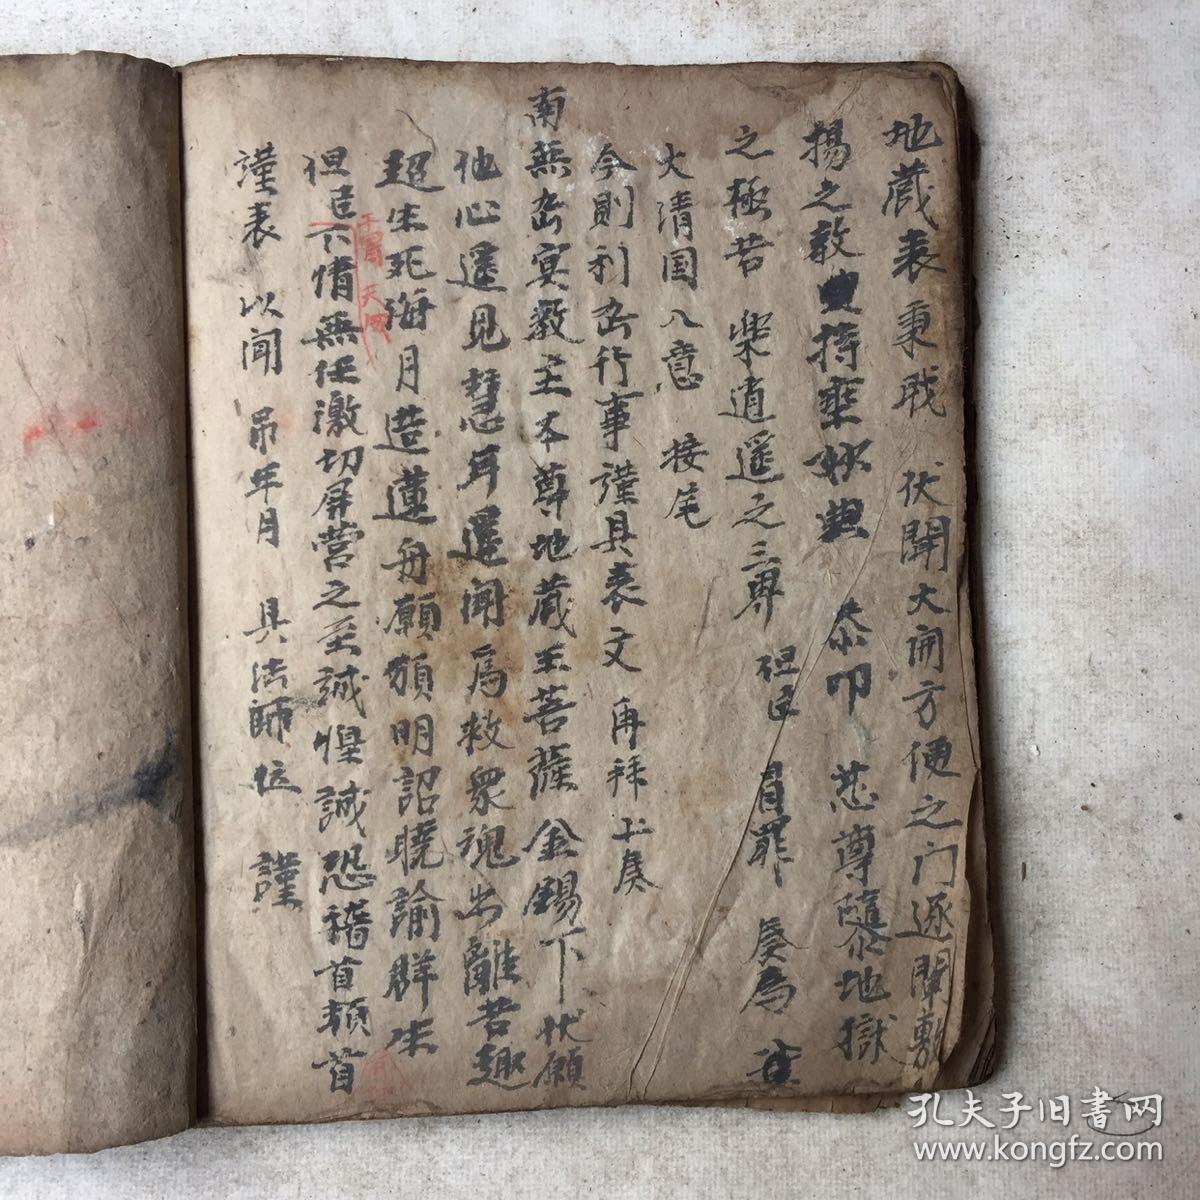 地蔵表秉戒 伏聞大開方便之门逐闡敷
揚之教 持妙典 恭叩 慈尊隨化地獄
之極苦 樂逍遥之三界 但臣 冐罪 奏為
大清国入意 接尾
今則利 行事謹具表文 再拜上奏
南無 冥教主本尊地蔵王菩薩 金錫下伏願
他心遥見慧耳遥聞為救眾魂出離苦趣
超生死海月造蓮舟願頒明詔曉諭群生
但臣下情無任激切屏营之至誠惶誠恐稽首頓首
干冐天威
謹表 以聞 年月 具法師位 謹
孔夫子旧书网
www.kongfz.com